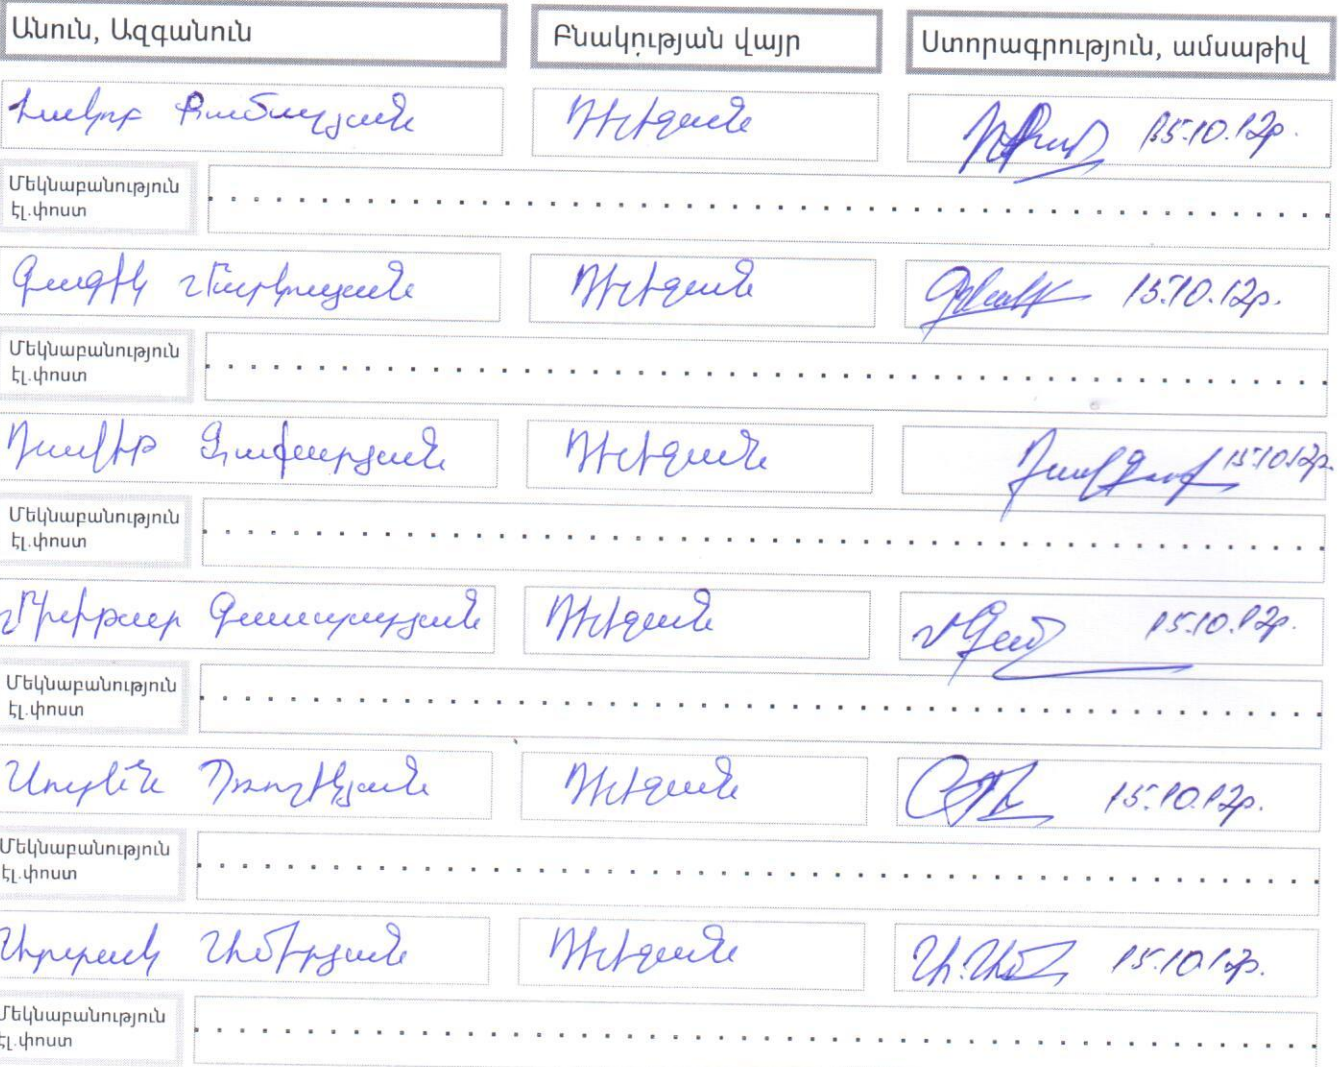 Անուն, Ազգանուն Բնակության վայր Ստորագրություն, ամսաթիվ
Հակոբ Քամալյան Դիլիջան 15.10.12թ.
Մեկնաբանություն
էլ.փոստ
Գագիկ Մարկոսյան Դիլիջան 15.10.12թ.
Մեկնաբանություն
էլ.փոստ
Դավիթ Զաքարյան Դիլիջան 15.10.12թ.
Մեկնաբանություն
էլ.փոստ
Մխիթար Գասպարյան Դիլիջան 15.10.12թ.
Մեկնաբանություն
էլ.փոստ
Սուրեն Պռոշկյան Դիլիջան 15.10.12թ.
Մեկնաբանություն
էլ.փոստ
Արտակ Ամիրյան Դիլիջան 15.10.12թ.
Մեկնաբանություն
էլ.փոստ